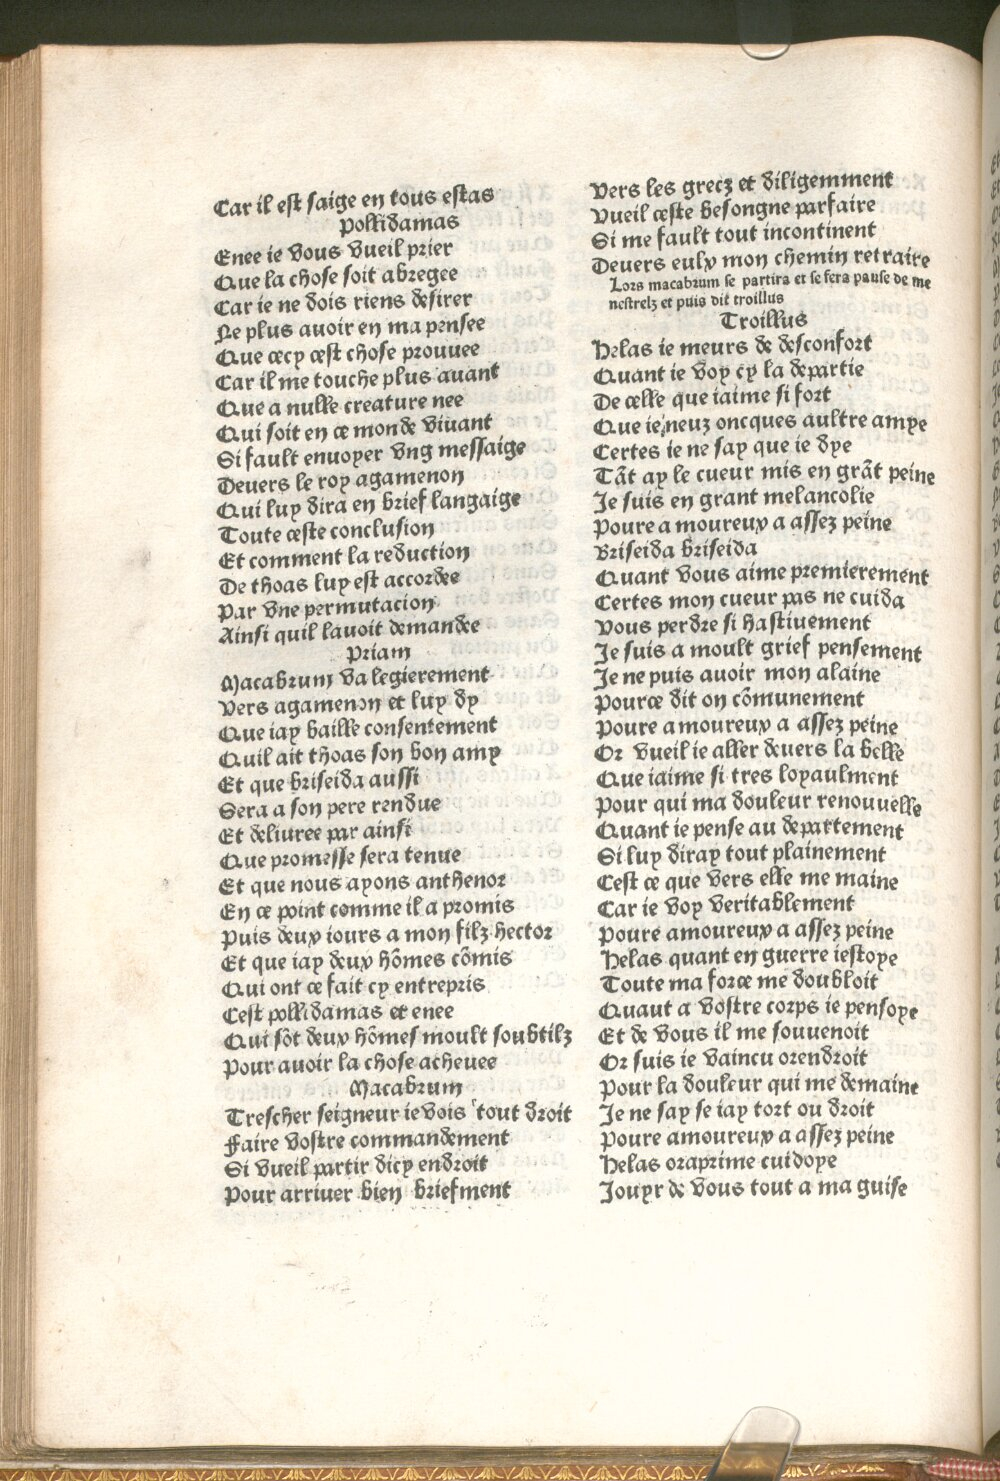 Car il est saige en tous estas
Pollidamas
Enee ie vous vueil prier
Que la chose soit abregee
Car ie ne dois riens desirer
Ne plus auoir en ma pensee
Que cecy cest chose prouuee
Car il me touche plus auant
Que a nulle creature nee
Qui soit en ce monde viuant
Si fault enuoyer vng messaige
Deuers le roy agamenon
Qui luy dira en brief langaige
Toute ceste conclusion
Et comment la reduction
De thoas luy est accordee
Par vne permutacion
Ainsi quil lauoit demandee
Priam
Macabrum va legierement
Vers agamenon et luy dy
Que iay baille consentement
Quil ait thoas son bon amy
Et que briseida aussi
Sera a son pere rendue
Et deliuree par ainsi
Que promesse sera tenue
Et que nous ayons anthenor
En ce point comme il a promis
Puis deux iours a mon filz hector
Et que iay deux hõmes cõmis
Qui ont ce fait cy entrepris
Cest pollidamas et enee
Qui sõt deux hõmes moult soubtilz
Pour auoir la chose acheuee
Macabrum
Trescher seigneur ie vois tout droit
Faire vostre commandement
Si vueil partir dicy endroit
Pour arriuer bien briefment
Vers les grecz et diligemment
Vueil ceste besongne parfaire
Si me fault tout incontinent
Deuers eulx mon chemin retraire
Lors macabrum se partira et se fera pause de me
nestrelz et puis dit troillus
Troillus
Helas ie meurs de desconfort
Quant ie voy cy la departie
De celle que iaime si fort
Que ie neuz oncques aultre amye
Certes ie ne say que ie dye
Tãt ay le cueur mis en grãt peine
Je suis en grant melancolie
Poure a moureux a assez peine
Briseida briseida
Quant vous aime premierement
Certes mon cueur pas ne cuida
Vous perdre si hastiuement
Je suis a moult grief pensement
Je ne puis auoir mon alaine
Pource dit on cõmunement
Poure a moureux a assez peine
Or vueil ie aller deuers la belle
Que iaime si tres loyaulment
Pour qui ma douleur renouuelle
Quant ie pense au departement
Si luy diray tout plainement
Cest ce que vers elle me maine
Car ie voy veritablement
Poure amoureux a assez peine
Helas quant en guerre iestoye
Toute ma force me doubloit
Quaut a vostre corps ie pensoye
Et de vous il me souuenoit
Or suis ie vaincu orendroit
Pour la douleur qui me demaine
Je ne say se iay tort ou droit
Poure amoureux a assez peine
Helas oraprime cuidoye
Jouyr de vous tout a ma guise